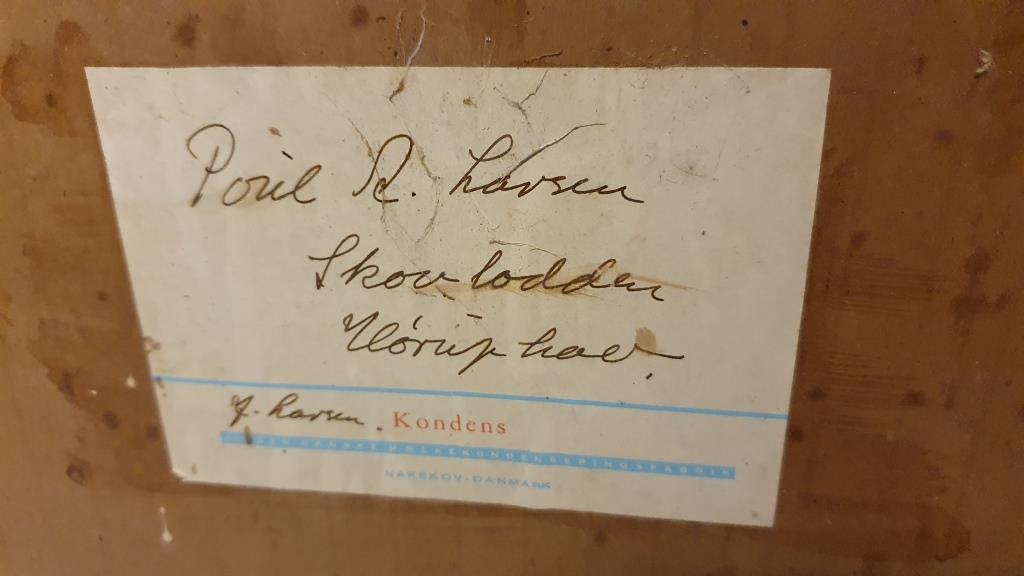 Poul R. Larsen
Skovlodden
Hørüphav.
J. Larsen. Kondens
DANSKE MÆLKEKONDENSERINGSFABRIK
NAKSKOV-DANMARK